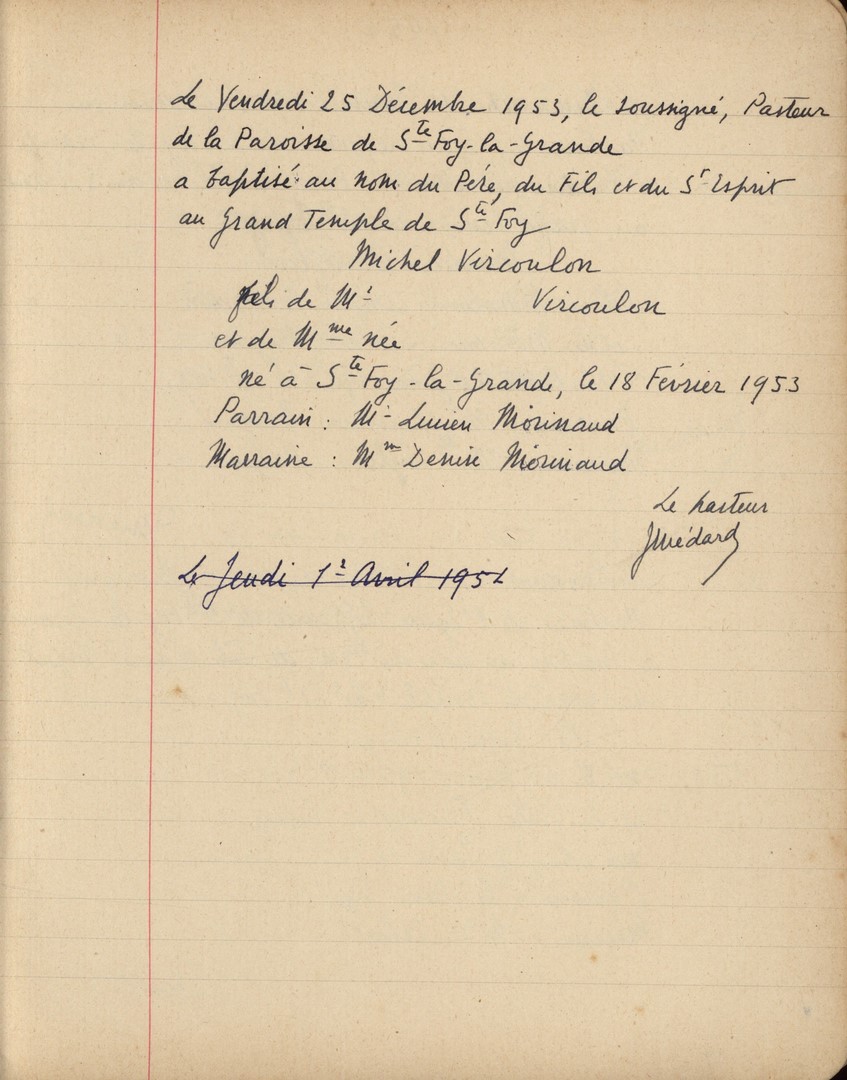 Le Vendredi 25 Décembre 1953, le soussigné, Pasteur
de la Paroisse de Ste Foy-la-Grande
a baptisé au nom du Père, du Fils et du St Esprit
au Grand Temple de Ste Foy
Michel Vircoulon
fils de Mr Vircoulon
et de Mme née
né à Ste Foy-la-Grande, le 18 Février 1953
Parrain : Mr Lucien Morinaud
Marraine : Mme Denise Morinaud
Le pasteur
JMédard
Le Jeudi 1er Avril 1954